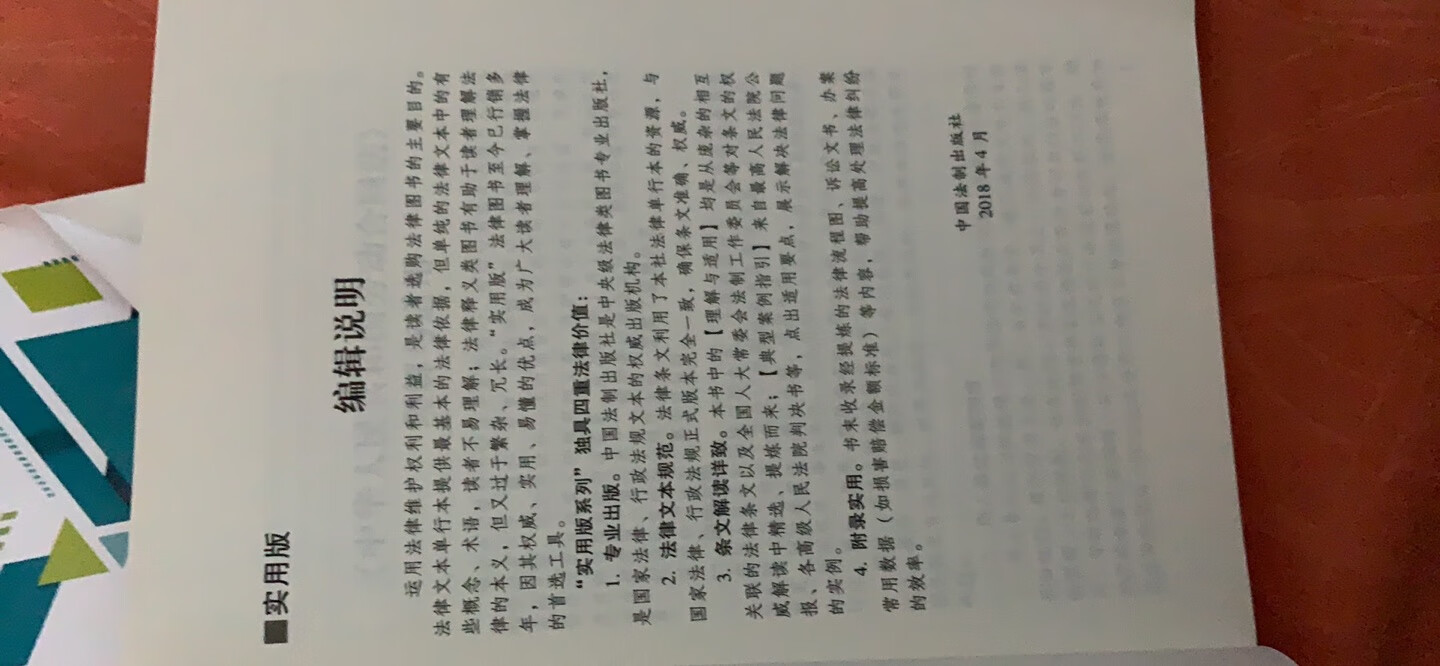 ■实用版
编辑说明
运用法律维护权利和利益，是读者选购法律图书的主要目的。
法律文本单行本提供最基本的法律依据，但单纯的法律文本中的有
些概念、术语，读者不易理解；法律释义类图书有助于读者理解法
律的本义，但又过于繁杂、冗长。“实用版”法律图书至今已行销多
年，因其权威、实用、易懂的优点，成为广大读者理解、掌握法律
的首选工具。
“实用版系列”独具四重法律价值：
1. 专业出版。中国法制出版社是中央级法律类图书专业出版社，
是国家法律、行政法规文本的权威出版机构。
2. 法律文本规范。法律条文利用了本社法律单行本的资源，与
国家法律、行政法规正式版本完全一致，确保条文准确、权威。
3. 条文解读详致。本书中的【理解与适用】均是从庞杂的相互
关联的法律条文以及全国人大常委会法制工作委员会等对条文的权
威解读中精选、提炼而来；【典型案例指引】来自最高人民法院公
报、各高级人民法院判决书等，点出适用要点，展示解决法律问题
的实例。
4. 附录实用。书末收录经提炼的法律流程图、诉讼文书、办案
常用数据（如损害赔偿金额标准）等内容，帮助提高处理法律纠纷
的效率。
中国法制出版社
2018年4月